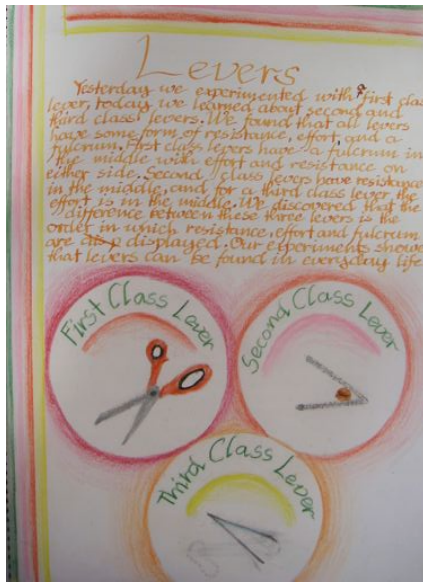 Levers
Yesterday we experimented with a first clas
lever, today we learned about second and
third class levers. We found that all levers
have some form of resistance, effort, and a
fulcrum. First class levers have a fulcrum in
the middle with effort and resistance on
either side. Second class levers have resistance
in the middle, and for a third class lever the
effort is in the middle. We discovered that the
difference between these three levers is the
order in which resistance, effort and fulcrum
are displayed. Our experiments showe
that levers can be found in everyday life
First Class Lever
Second Class Lever
Third Class Lever